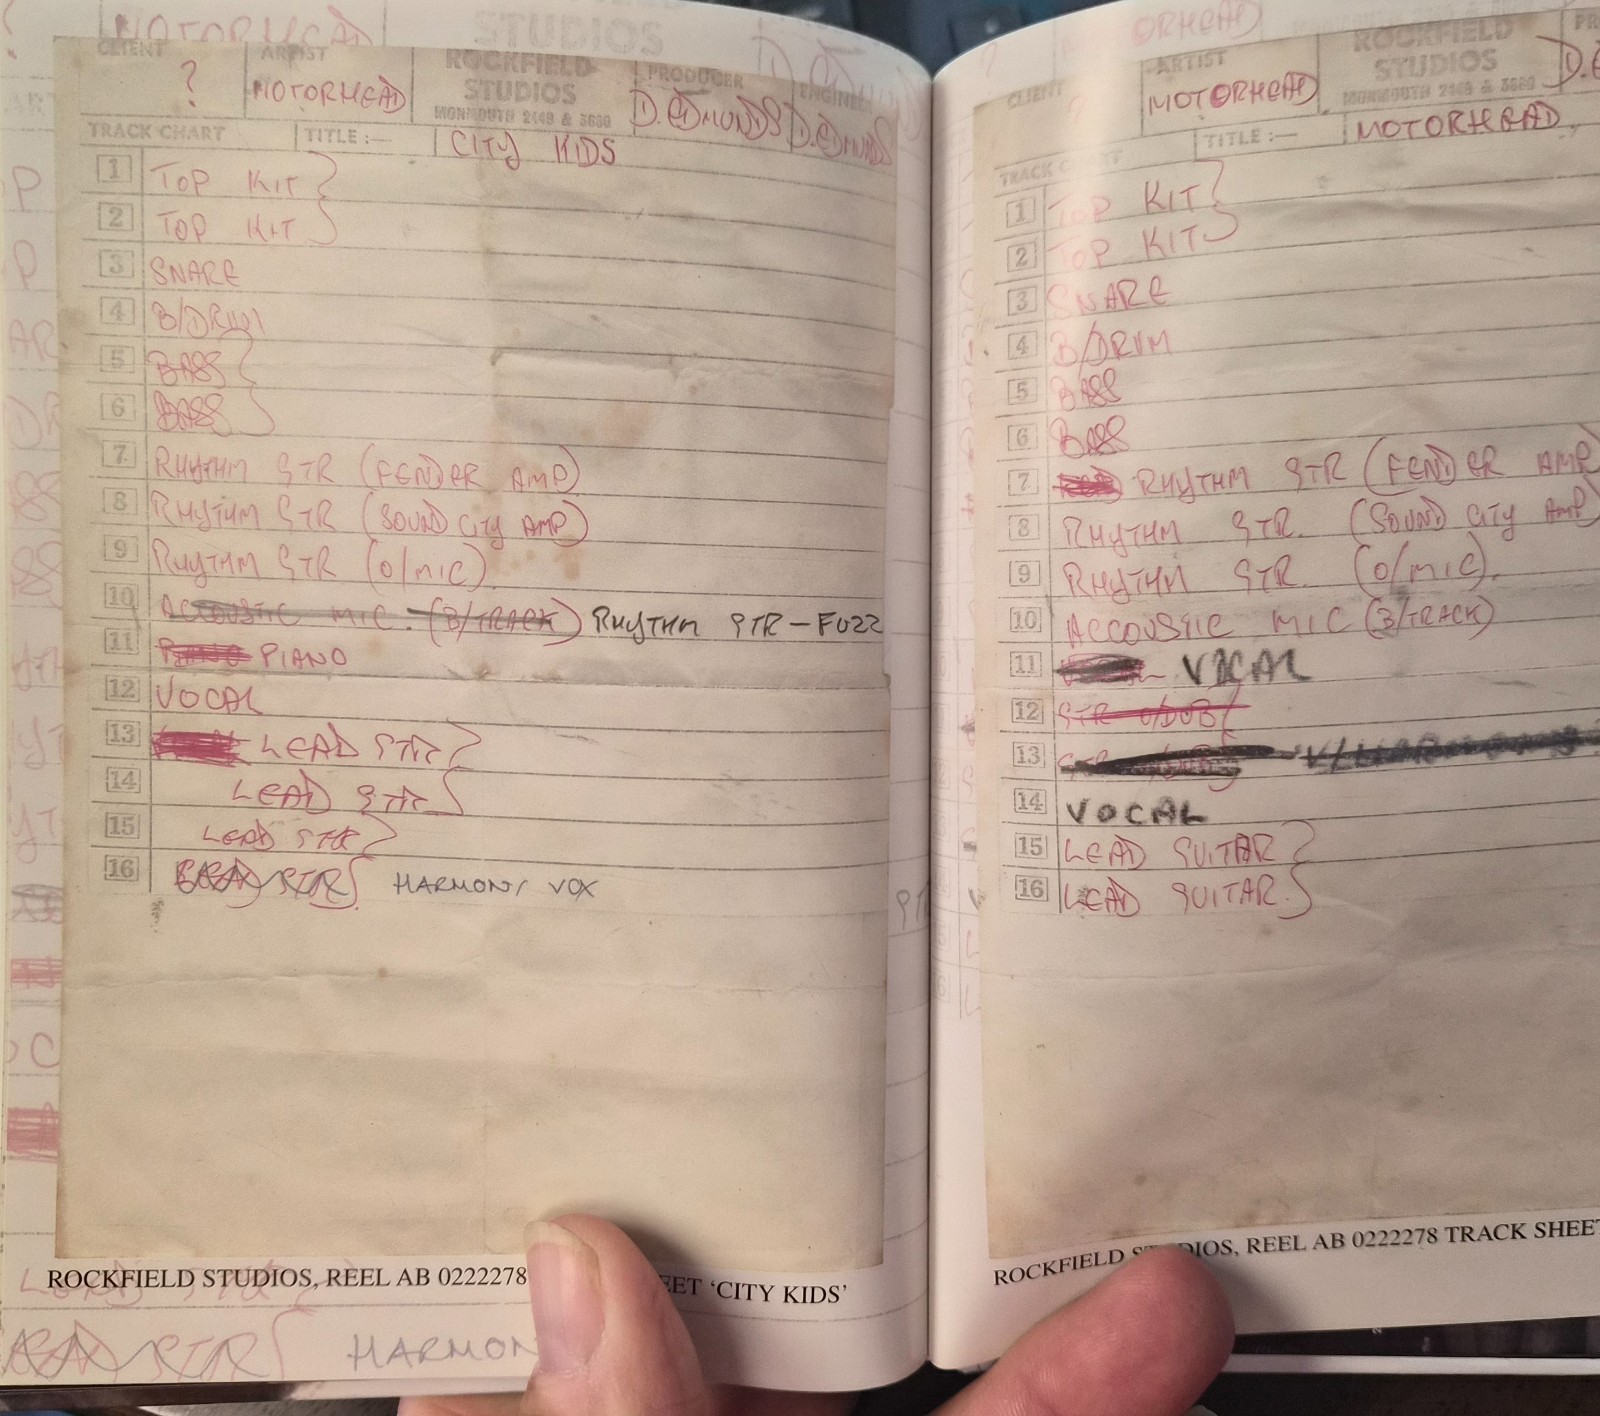 CLIENT ?
ARTIST MOTORHEAD
ROCKFIELD STUDIOS
MONMOUTH 2449 & 3680
PRODUCER D. EDMUNDS
ENGINEER D. EDMUNDS
TRACK CHART TITLE :— CITY KIDS
1 TOP KIT
2 TOP KIT
3 SNARE
4 B/DRUM
5 BASS
6 BASS
7 RHYTHM GTR (FENDER AMP)
8 RHYTHM GTR (SOUND CITY AMP)
9 RHYTHM GTR (O/MIC).
10 ACCOUSTIC MIC. (B/TRACK) RHYTHM GTR – FUZZ
11 PIANO PIANO
12 VOCAL
13 LEAD GTR
14 LEAD GTR
15 LEAD GTR
16 LEAD GTR HARMONY VOX
ROCKFIELD STUDIOS, REEL AB 0222278 'CITY KIDS'
CLIENT
ARTIST MOTORHEAD
ROCKFIELD STUDIOS
MONMOUTH 2449 & 3680
TRACK CHART TITLE :— MOTORHEAD
1 TOP KIT
2 TOP KIT
3 SNARE
4 B/DRUM
5 BASS
6 BASS
7 RHYTHM GTR (FENDER AMP)
8 RHYTHM GTR. (SOUND CITY AMP)
9 RHYTHM GTR. (O/MIC).
10 ACCOUSTIC MIC (B/TRACK)
11 VOCAL
12 GTR O/DUB
13
14 VOCAL
15 LEAD GUITAR
16 LEAD GUITAR.
ROCKFIELD STUDIOS, REEL AB 0222278 TRACK SHEET